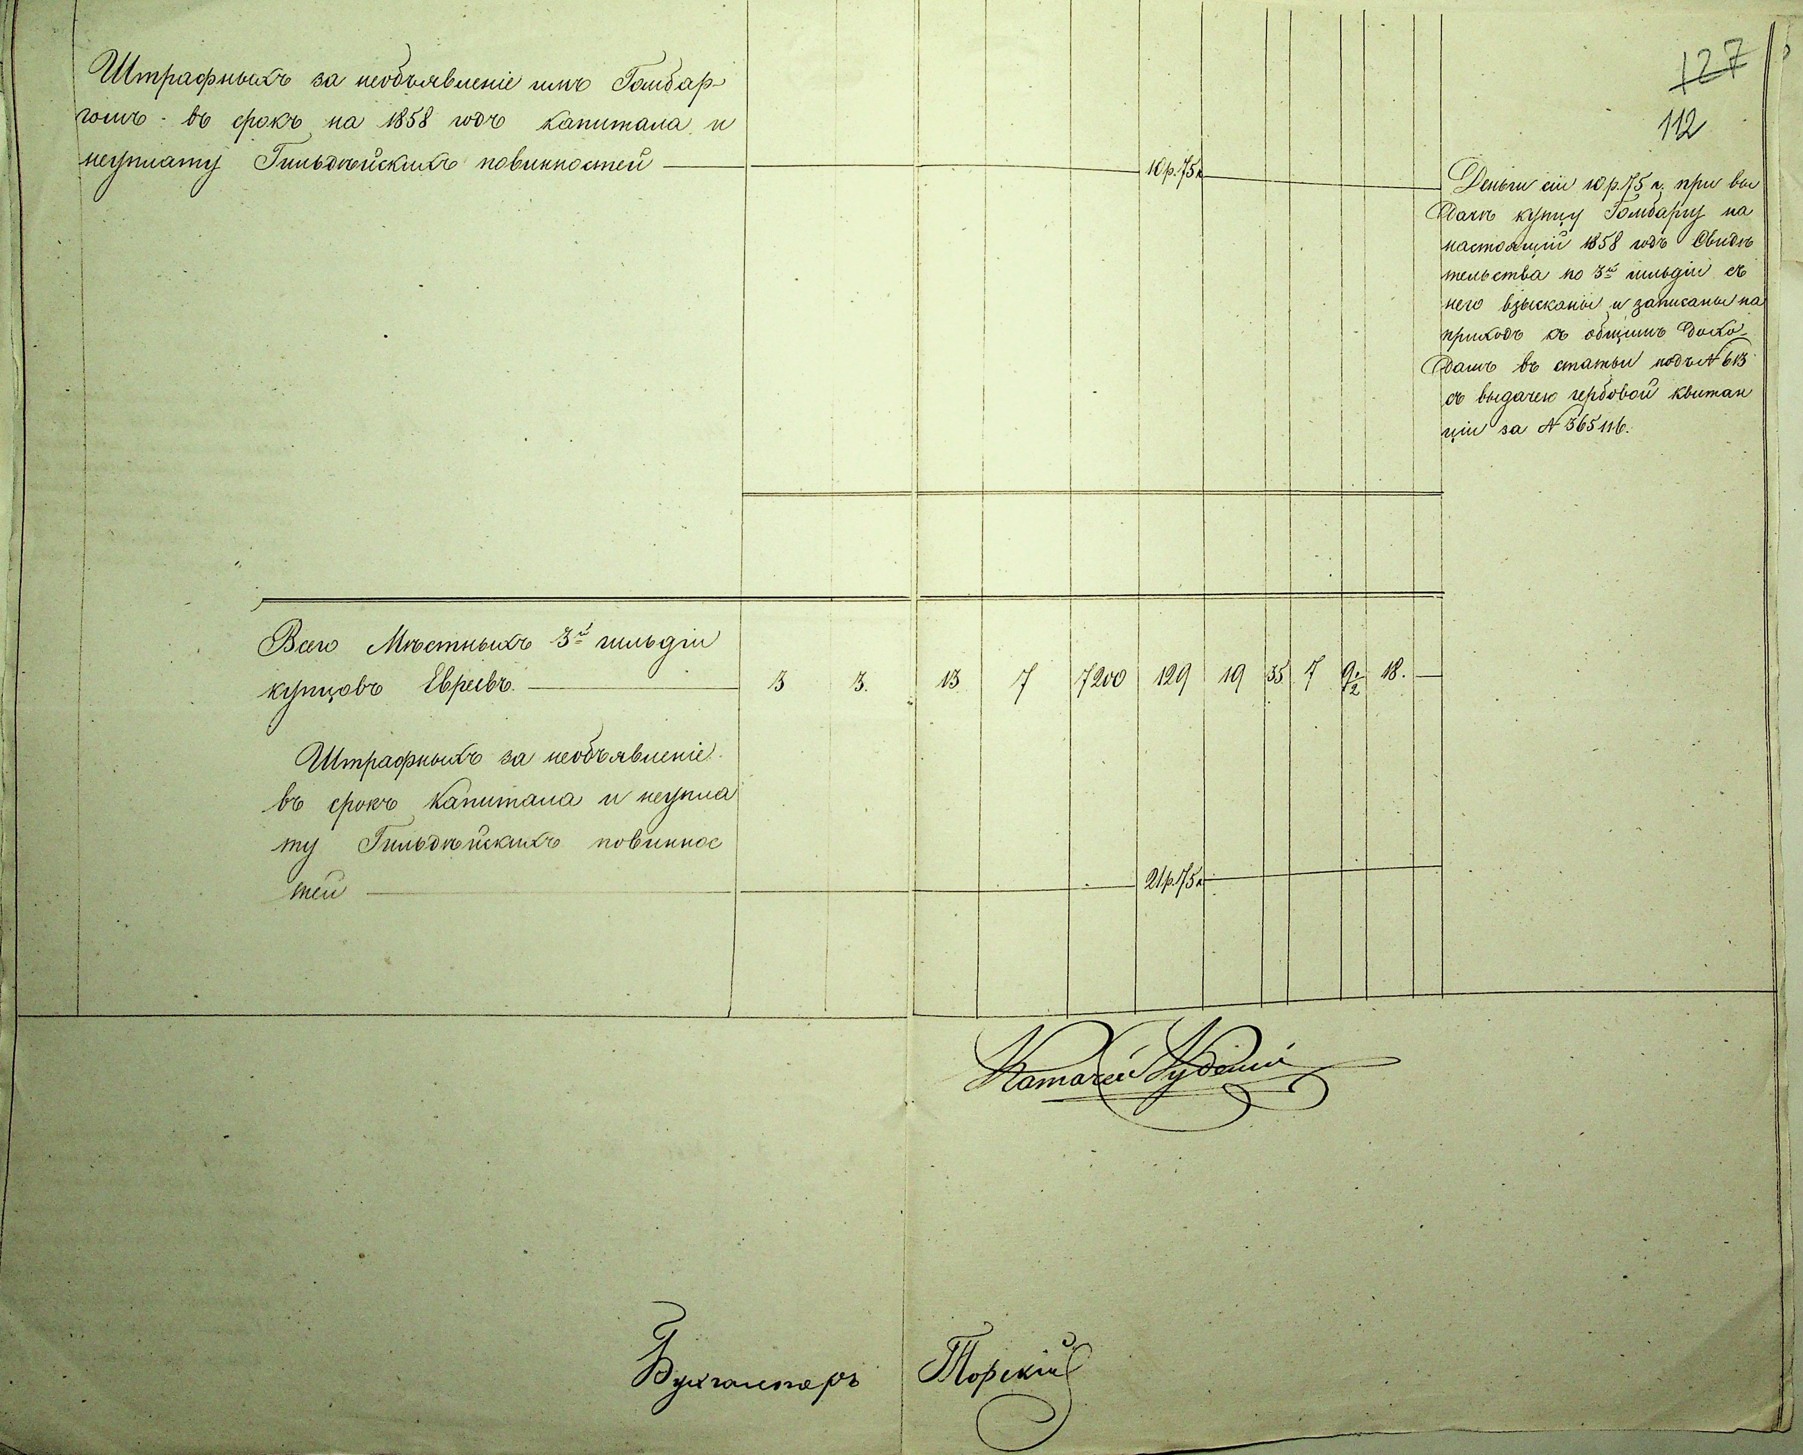 127
112
Штрафныхъ за необъявленіе имъ Гомбар-
гомъ въ срокъ на 1858 годъ капитала и
неуплату Гильдѣйскихъ повинностей 10 р. 75 к
Деньги сіи 10 р. 75 к. при вы
дачѣ купцу Гомбаргу на
настоящій 1858 годъ Свидѣ
тельства по 3й гильдіи съ
него взысканы и записаны на
приходъ къ общимъ дохо-
дамъ въ статьи подъ № 613
съ выдачею гербовой квитан
ціи за № 36516.
Всего Мѣстныхъ 3й гильдіи
купцовъ Евреевъ. 3 3. 13 7 7200 129 19 35 7 9 1/2 18. —
Штрафныхъ за необъявленіе
въ срокъ капитала и неупла
ту Гильдѣйскихъ повиннос
тей 21 р. 75 к
Казначей
Бухгалтеръ Торскій